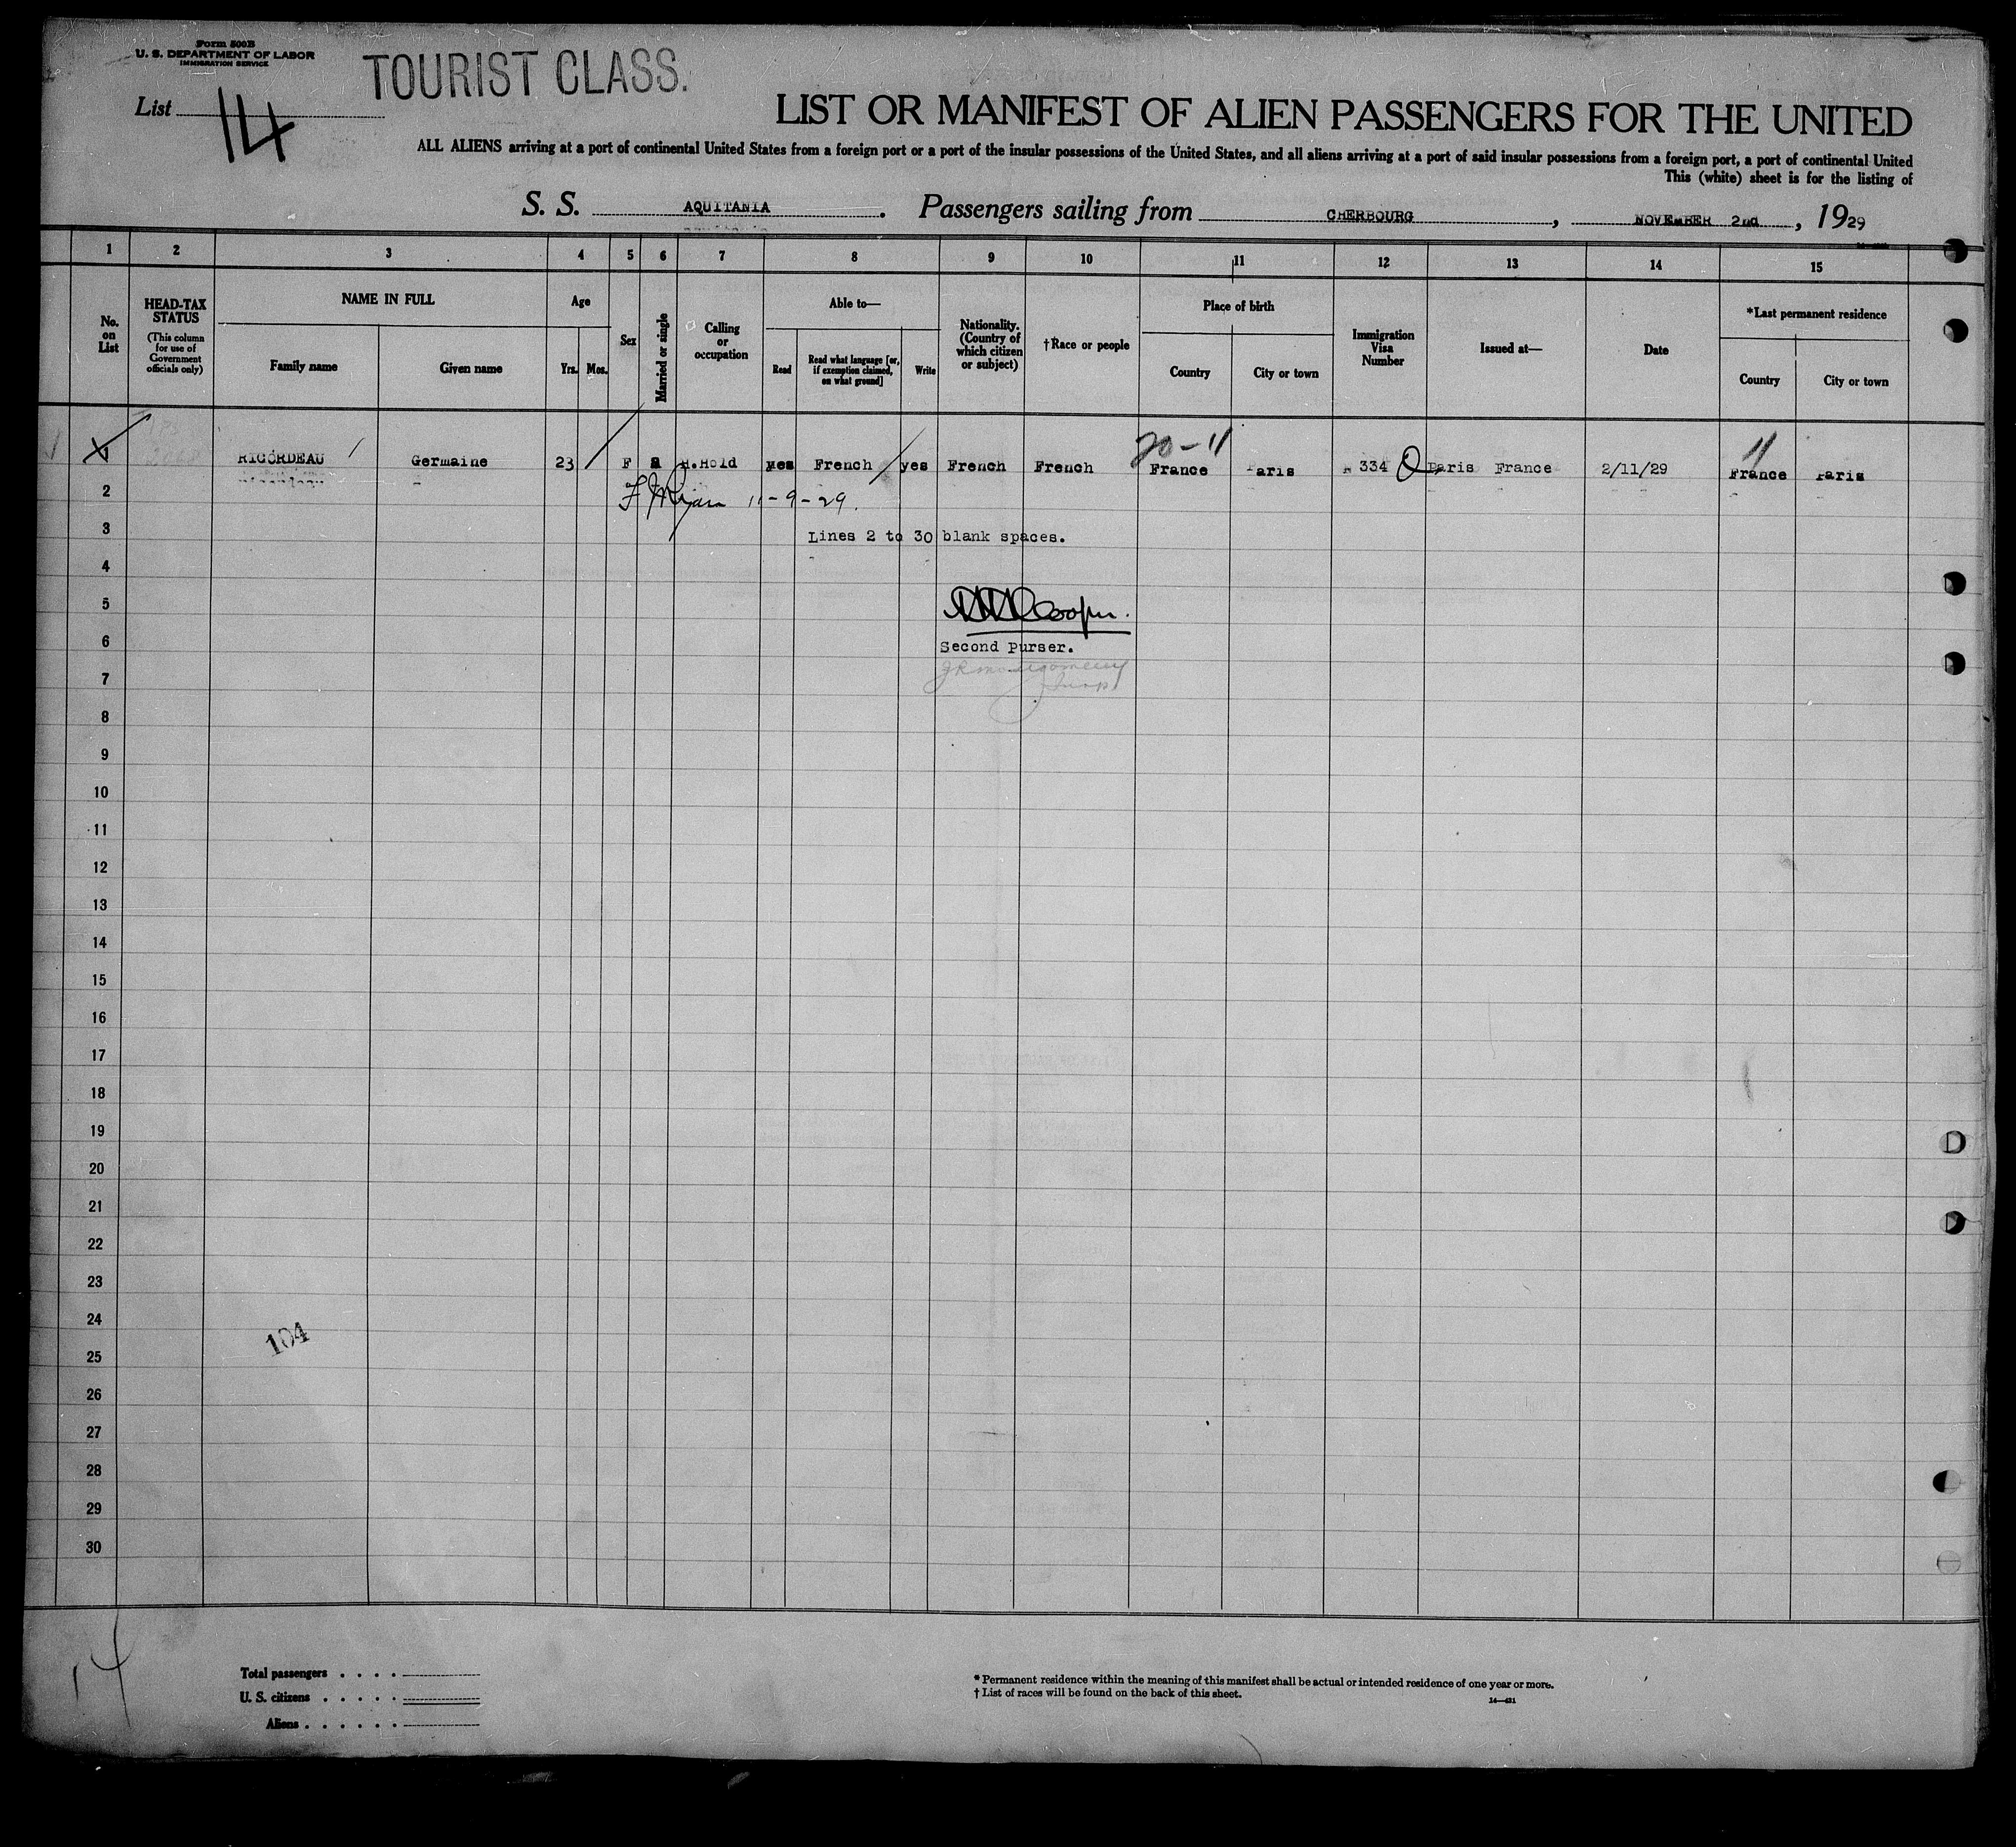 Form 500B
U. S. DEPARTMENT OF LABOR
IMMIGRATION SERVICE
TOURIST CLASS.
List 14
LIST OR MANIFEST OF ALIEN PASSENGERS FOR THE UNITED
ALL ALIENS arriving at a port of continental United States from a foreign port or a port of the insular possessions of the United States, and all aliens arriving at a port of said insular possessions from a foreign port, a port of continental United
This (white) sheet is for the listing of
S. S. AQUITANIA. Passengers sailing from CHERBOURG, NOVEMBER 2nd, 1929
1 2 3 4 5 6 7 8 9 10 11 12 13 14 15
No. on List
HEAD-TAX STATUS (This column for use of Government officials only)
NAME IN FULL
Family name
Given name
Age
Yrs. Mos.
Sex
Married or single
Calling or occupation
Able to—
Read
Read what language [or, if exemption claimed, on what ground]
Write
Nationality. (Country of which citizen or subject)
†Race or people
Place of birth
Country
City or town
Immigration Visa Number
Issued at—
Date
*Last permanent residence
Country
City or town
20-11 11
1 RICORDEAU Germaine 23 F H.Hold yes French yes French French France Paris 334 Paris France 2/11/29 France Paris
2 11-9-29.
3 Lines 2 to 30 blank spaces.
4
5 Cooper.
6 Second Purser.
7
8
9
10
11
12
13
14
15
16
17
18
19
20
21
22
23
24
104
25
26
27
28
29
30
14
Total passengers . . . .
U. S. citizens . . . . .
Aliens . . . . . .
* Permanent residence within the meaning of this manifest shall be actual or intended residence of one year or more.
† List of races will be found on the back of this sheet.
14—431